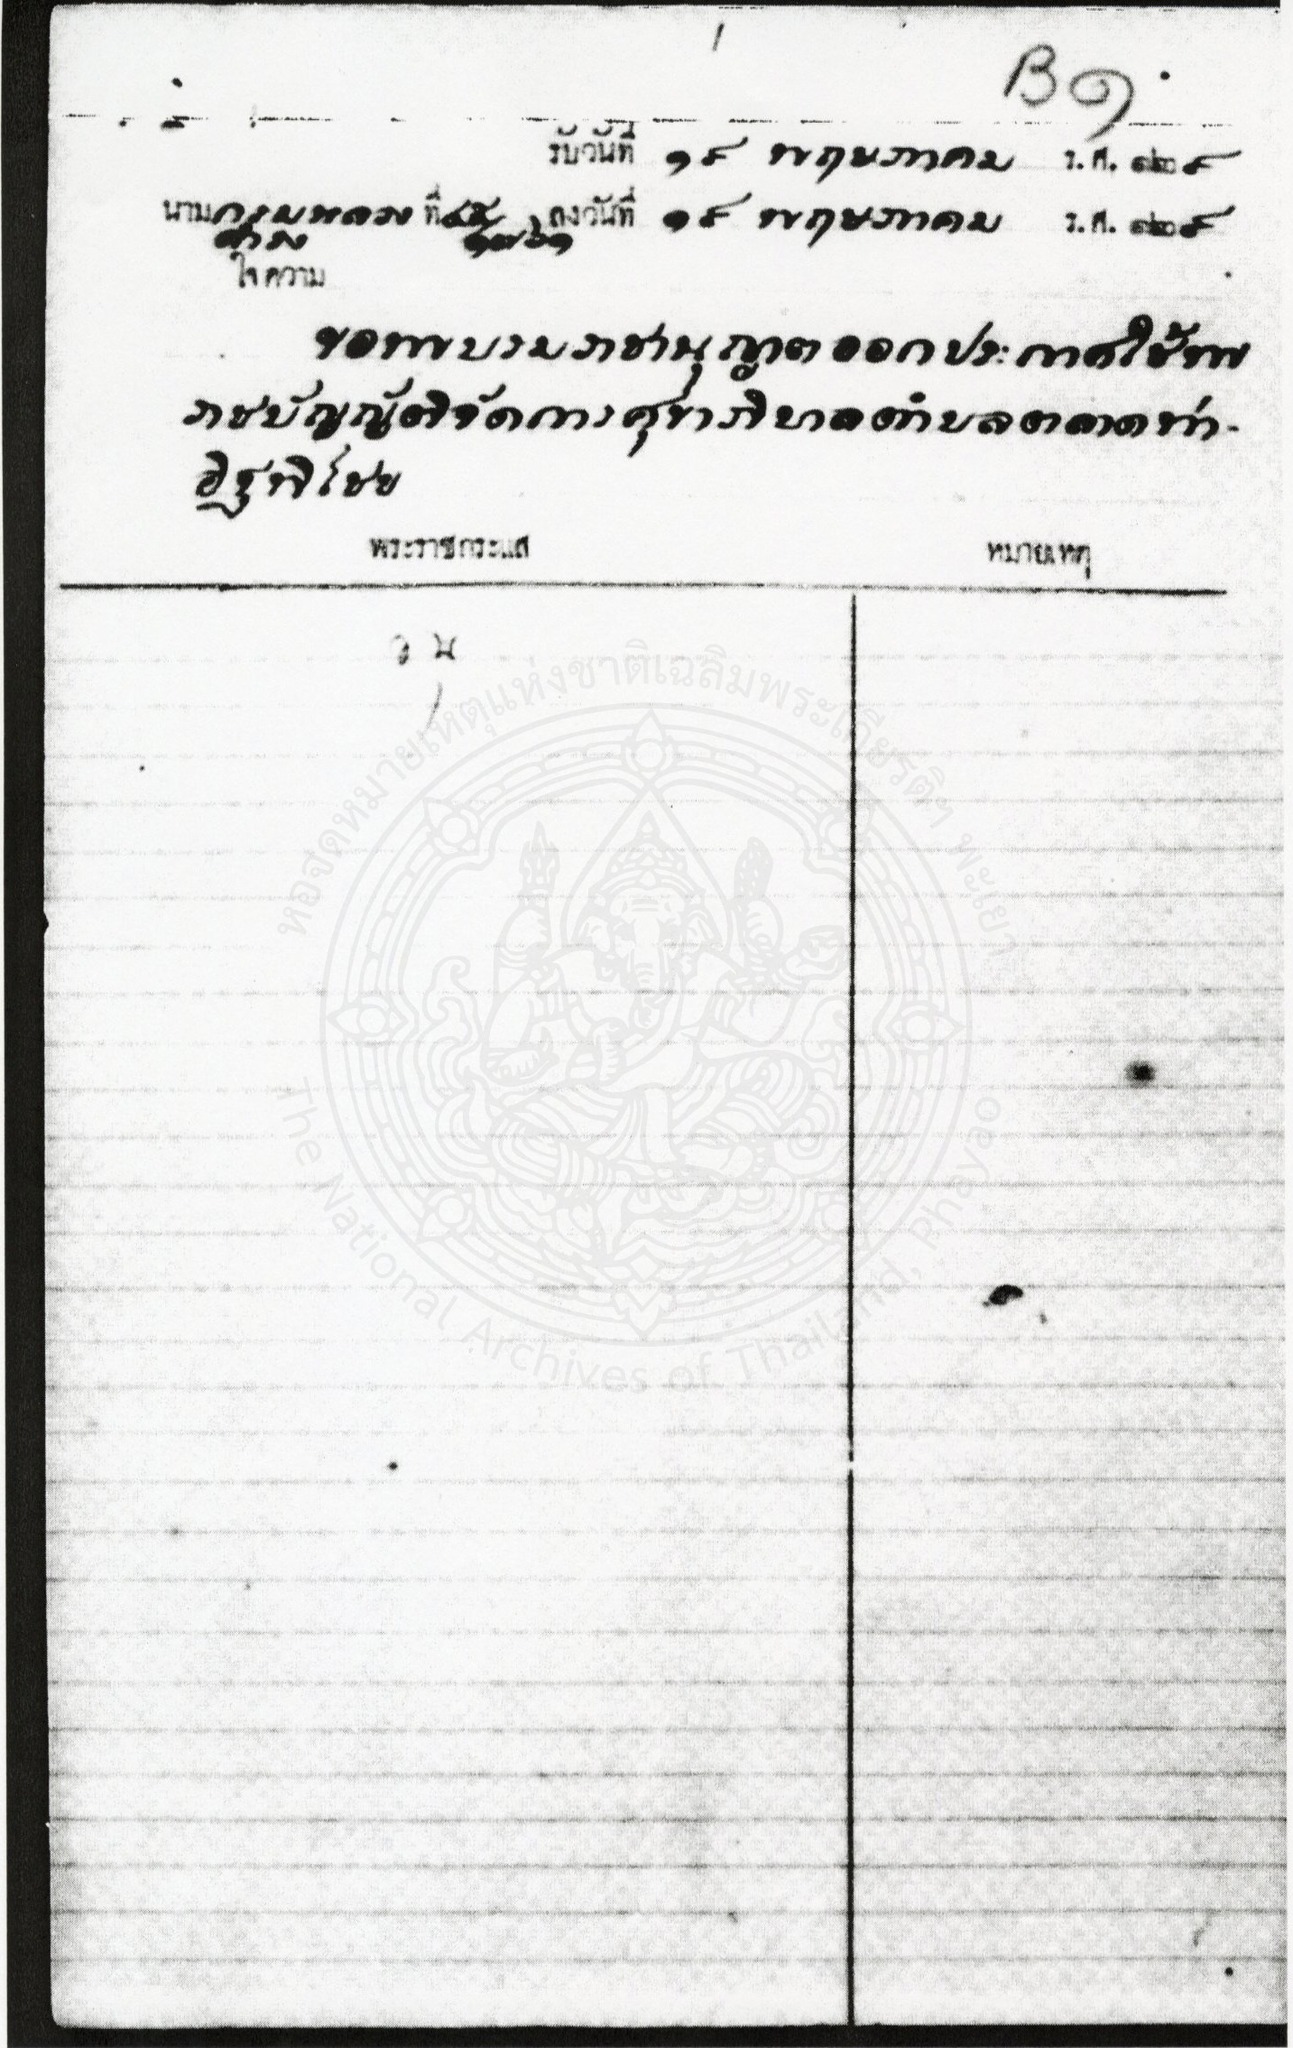 B ๑
รับวันที่ ๑๙ พฤษภาคม ร.ศ. ๑๒๙
นาม กรมหลวง ที่ ลงวันที่ ๑๙ พฤษภาคม ร.ศ. ๑๒๙
ดำรง
ใจความ
ขอพบรมราชานุญาตออกประกาศใช้พ
ราชบัญญัติจัดการศุขาภิบาลตำบลตลาดท่า-
อิฐพิไชย
พระราชกระแส หมายเหตุ
หอจดหมายเหตุแห่งชาติเฉลิมพระเกียรติฯ พะเยา
The National Archives of Thailand, Phayao